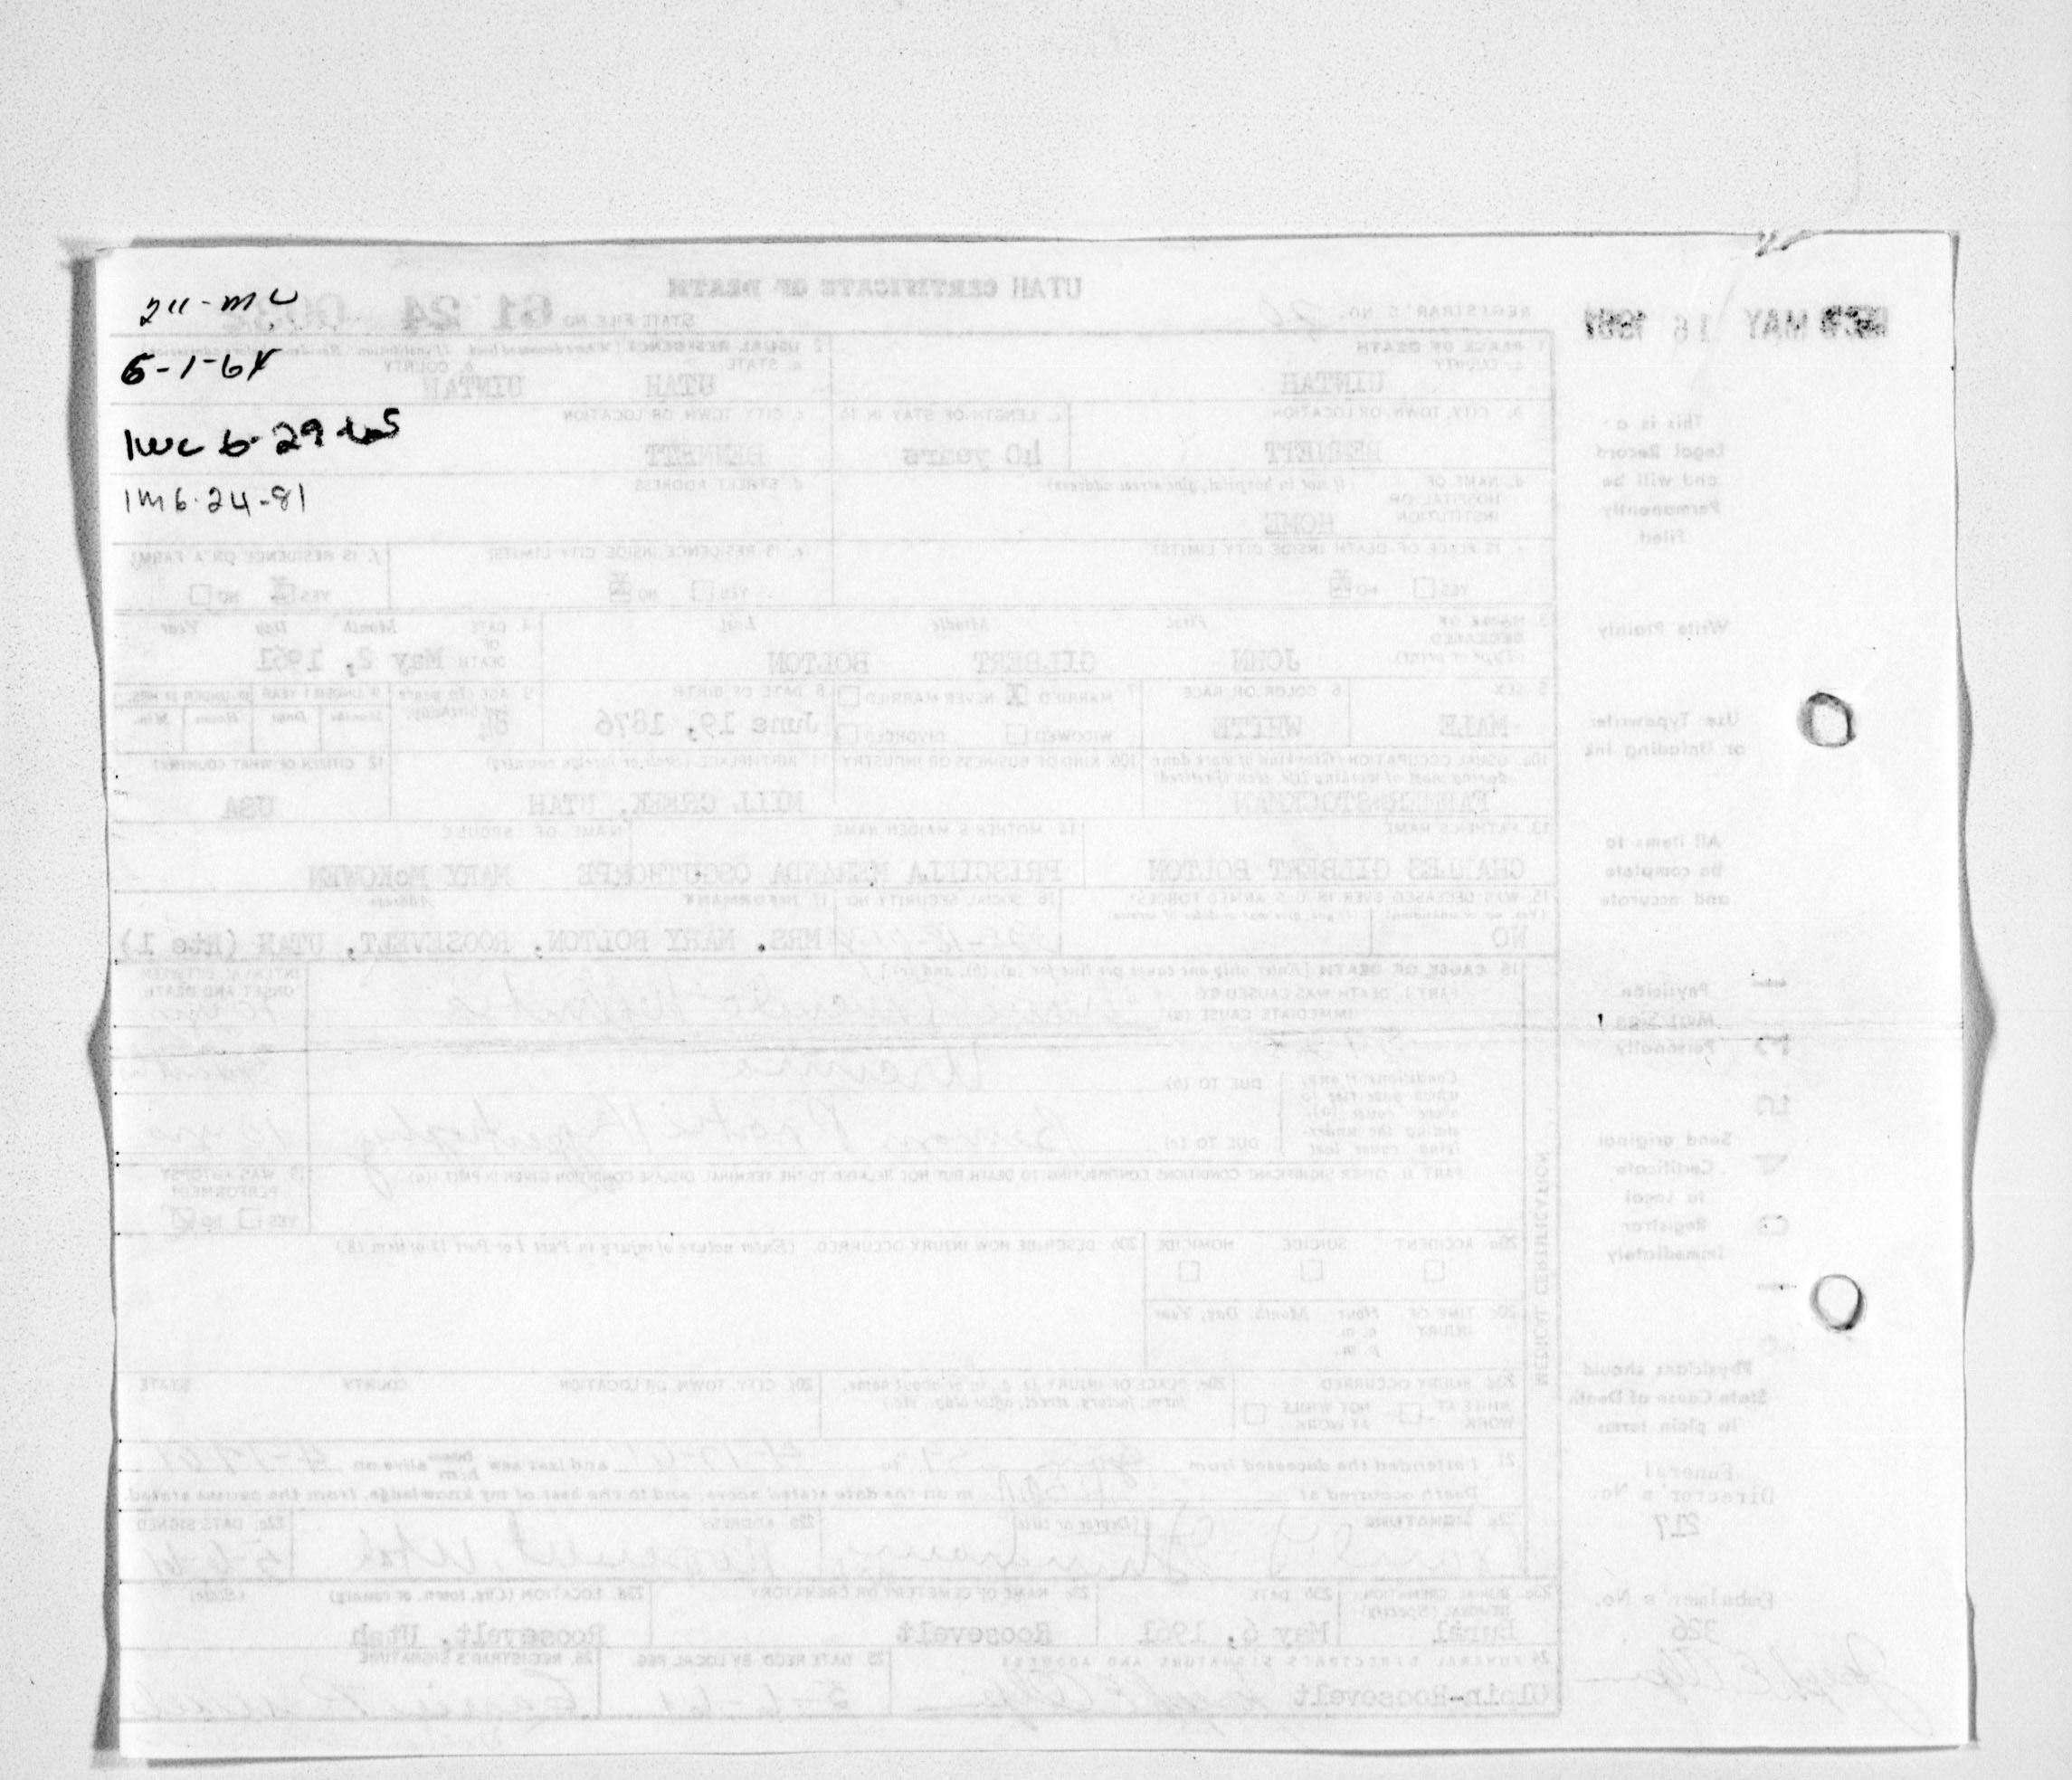 211-mc
6-1-64
1wc 6-29
1m 6-24-81
UTAH CERTIFICATE OF DEATH
REC'D MAY 16 1961
REGISTRAR'S NO.
STATE FILE NO. 61 24
1. PLACE OF DEATH
a. COUNTY
UINTAH
2. USUAL RESIDENCE (Where deceased lived. If institution: Residence before admission)
a. STATE
UTAH
b. COUNTY
UINTAH
b. CITY, TOWN, OR LOCATION
BENNETT
c. LENGTH OF STAY IN 1b
40 years
c. CITY, TOWN OR LOCATION
BENNETT
d. NAME OF HOSPITAL OR INSTITUTION (If not in hospital, give street address)
HOME
d. STREET ADDRESS
e. IS PLACE OF DEATH INSIDE CITY LIMITS?
YES NO X
e. IS RESIDENCE INSIDE CITY LIMITS?
YES NO X
f. IS RESIDENCE ON A FARM?
YES X NO
3. NAME OF DECEASED (Type or print)
First Middle Last
JOHN GILBERT BOLTON
4. DATE OF DEATH Month Day Year
May 2, 1961
5. SEX
MALE
6. COLOR OR RACE
WHITE
7. MARRIED X NEVER MARRIED
WIDOWED DIVORCED
8. DATE OF BIRTH
June 19, 1876
9. AGE (In years last birthday)
84
IF UNDER 1 YEAR IF UNDER 24 HRS.
Months Days Hours Min.
10a. USUAL OCCUPATION (Give kind of work done during most of working life, even if retired)
FARMER&STOCKMAN
10b. KIND OF BUSINESS OR INDUSTRY
11. BIRTHPLACE (State or foreign country)
MILL CREEK, UTAH
12. CITIZEN OF WHAT COUNTRY?
USA
13. FATHER'S NAME
CHARLES GILBERT BOLTON
14. MOTHER'S MAIDEN NAME
PRISCILLA MERANDA OSGUTHORPE
NAME OF SPOUSE
MARY McKOWEN
15. WAS DECEASED EVER IN U.S. ARMED FORCES?
(Yes, no or unknown) (If yes, give war or dates of service)
NO
16. SOCIAL SECURITY NO.
17. INFORMANT Address
MRS. MARY BOLTON, ROOSEVELT, UTAH (Rte 1)
18. CAUSE OF DEATH [Enter only one cause per line for (a), (b), and (c).]
PART I. DEATH WAS CAUSED BY:
IMMEDIATE CAUSE (a)
INTERVAL BETWEEN ONSET AND DEATH
Conditions, if any, which gave rise to above cause (a), stating the underlying cause last
DUE TO (b) Uraemia
DUE TO (c) Benign Prostatic Hypertrophy
10 yrs
PART II. OTHER SIGNIFICANT CONDITIONS CONTRIBUTING TO DEATH BUT NOT RELATED TO THE TERMINAL DISEASE CONDITION GIVEN IN PART I(a)
19. WAS AUTOPSY PERFORMED?
YES NO X
MEDICAL CERTIFICATION
20a. ACCIDENT SUICIDE HOMICIDE
20b. DESCRIBE HOW INJURY OCCURRED. (Enter nature of injury in Part I or Part II of item 18.)
20c. TIME OF INJURY Hour Month, Day, Year
a. m.
p. m.
20d. INJURY OCCURRED
WHILE AT WORK NOT WHILE AT WORK
20e. PLACE OF INJURY (e. g., in or about home, farm, factory, street, office bldg., etc.)
20f. CITY, TOWN, OR LOCATION COUNTY STATE
21. I attended the deceased from to and last saw him alive on
Death occurred at m on the date stated above; and to the best of my knowledge, from the causes stated.
22a. SIGNATURE (Degree or title)
22b. ADDRESS
Roosevelt, Utah
22c. DATE SIGNED
5-6-61
23a. BURIAL, CREMATION, REMOVAL (Specify)
Burial
23b. DATE
May 6, 1961
23c. NAME OF CEMETERY OR CREMATORY
Roosevelt
23d. LOCATION (City, town, or county) (State)
Roosevelt, Utah
24. FUNERAL DIRECTOR'S SIGNATURE AND ADDRESS
Olpin-Roosevelt
25. DATE REC'D BY LOCAL REG.
5-6-61
26. REGISTRAR'S SIGNATURE
This is a
Legal Record
and will be
Permanently
filed
Write Plainly
Use Typewriter
or Unfading Ink
All items to
be complete
and accurate
Physician
Must Sign
Personally
Send original
Certificate
to Local
Registrar
Immediately
Physicians should
State Cause of Death
in plain terms
Funeral
Director's No.
217
Embalmer's No.
326